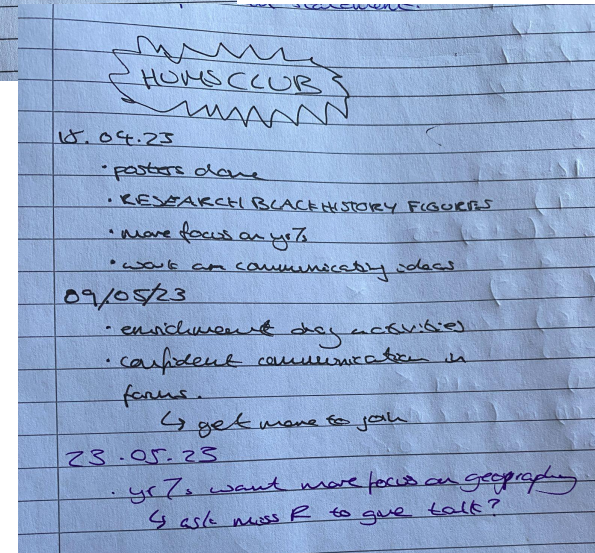 statement.
HUMSCLUB
18.04.23
· posters done
· RESEARCH BLACK HISTORY FIGURES
· more focus on yr7s
· work on communicating ideas
09/05/23
· enrichment day activities
· confident communication in
forms.
↳ get more to join
23.05.23
· yr7s want more focus on geography
↳ ask miss R to give talk?